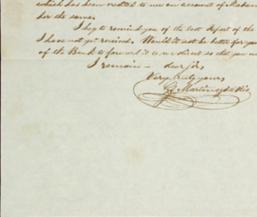 which has been credited to me on account of
for the same.
I beg to remind you of the last Report of the
I have not yet received. Would it not be better for you
of the Bank to forward it to me direct as
I remain – dear Sir,
Very truly yours,